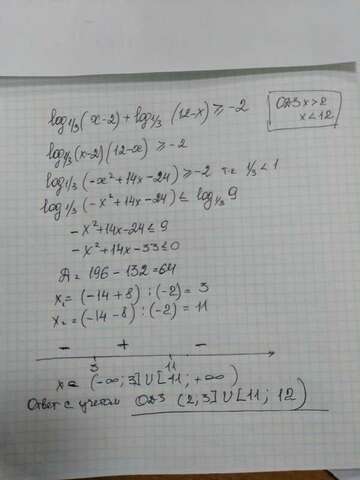 log1/3(x-2)+log1/3 (12-x) ≥ -2
ОДЗ x>2
x<12
log1/3(x-2)(12-x) ≥ -2
log1/3(-x²+14x-24) ≥ -2 т.к 1/3<1
log1/3(-x²+14x-24) ≤ log1/3 9
-x²+14x-24 ≤ 9
-x²+14x-33 ≤ 0
Д = 196-132=64
x₁=(-14+8):(-2)= 3
x₂=(-14-8):(-2)= 11
- + -
3 11
x ∈ (-∞;3]U[11;+∞)
Ответ с учетом ОДЗ (2,3]U[11; 12)